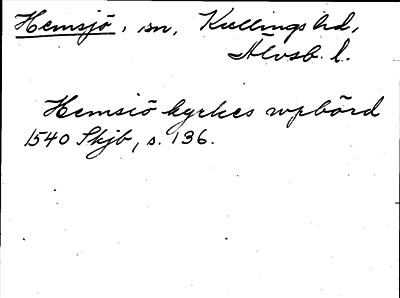 Hemsjö, sn, Kullings hd,
Älvsb. l.
Hemsiö kyrkes vpbörd
1540 Skjb, s. 136.